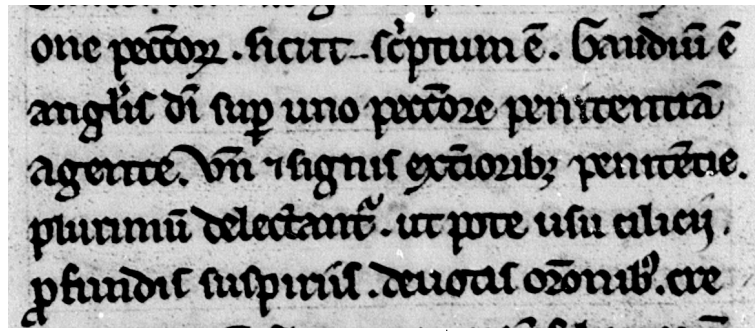 one pctōꝝ . sicut scͥptum ē . Gaudiū ē
angl̓is dī suꝑ uno pctōre penitentiā
agente. Vn̄ ⁊ signis ext̄iorib; penitētie.
plurimū delectant᷑ . ut pote usu cilicij .
ꝓfundis suspiriis . deuotis or̄onib᷒. cre